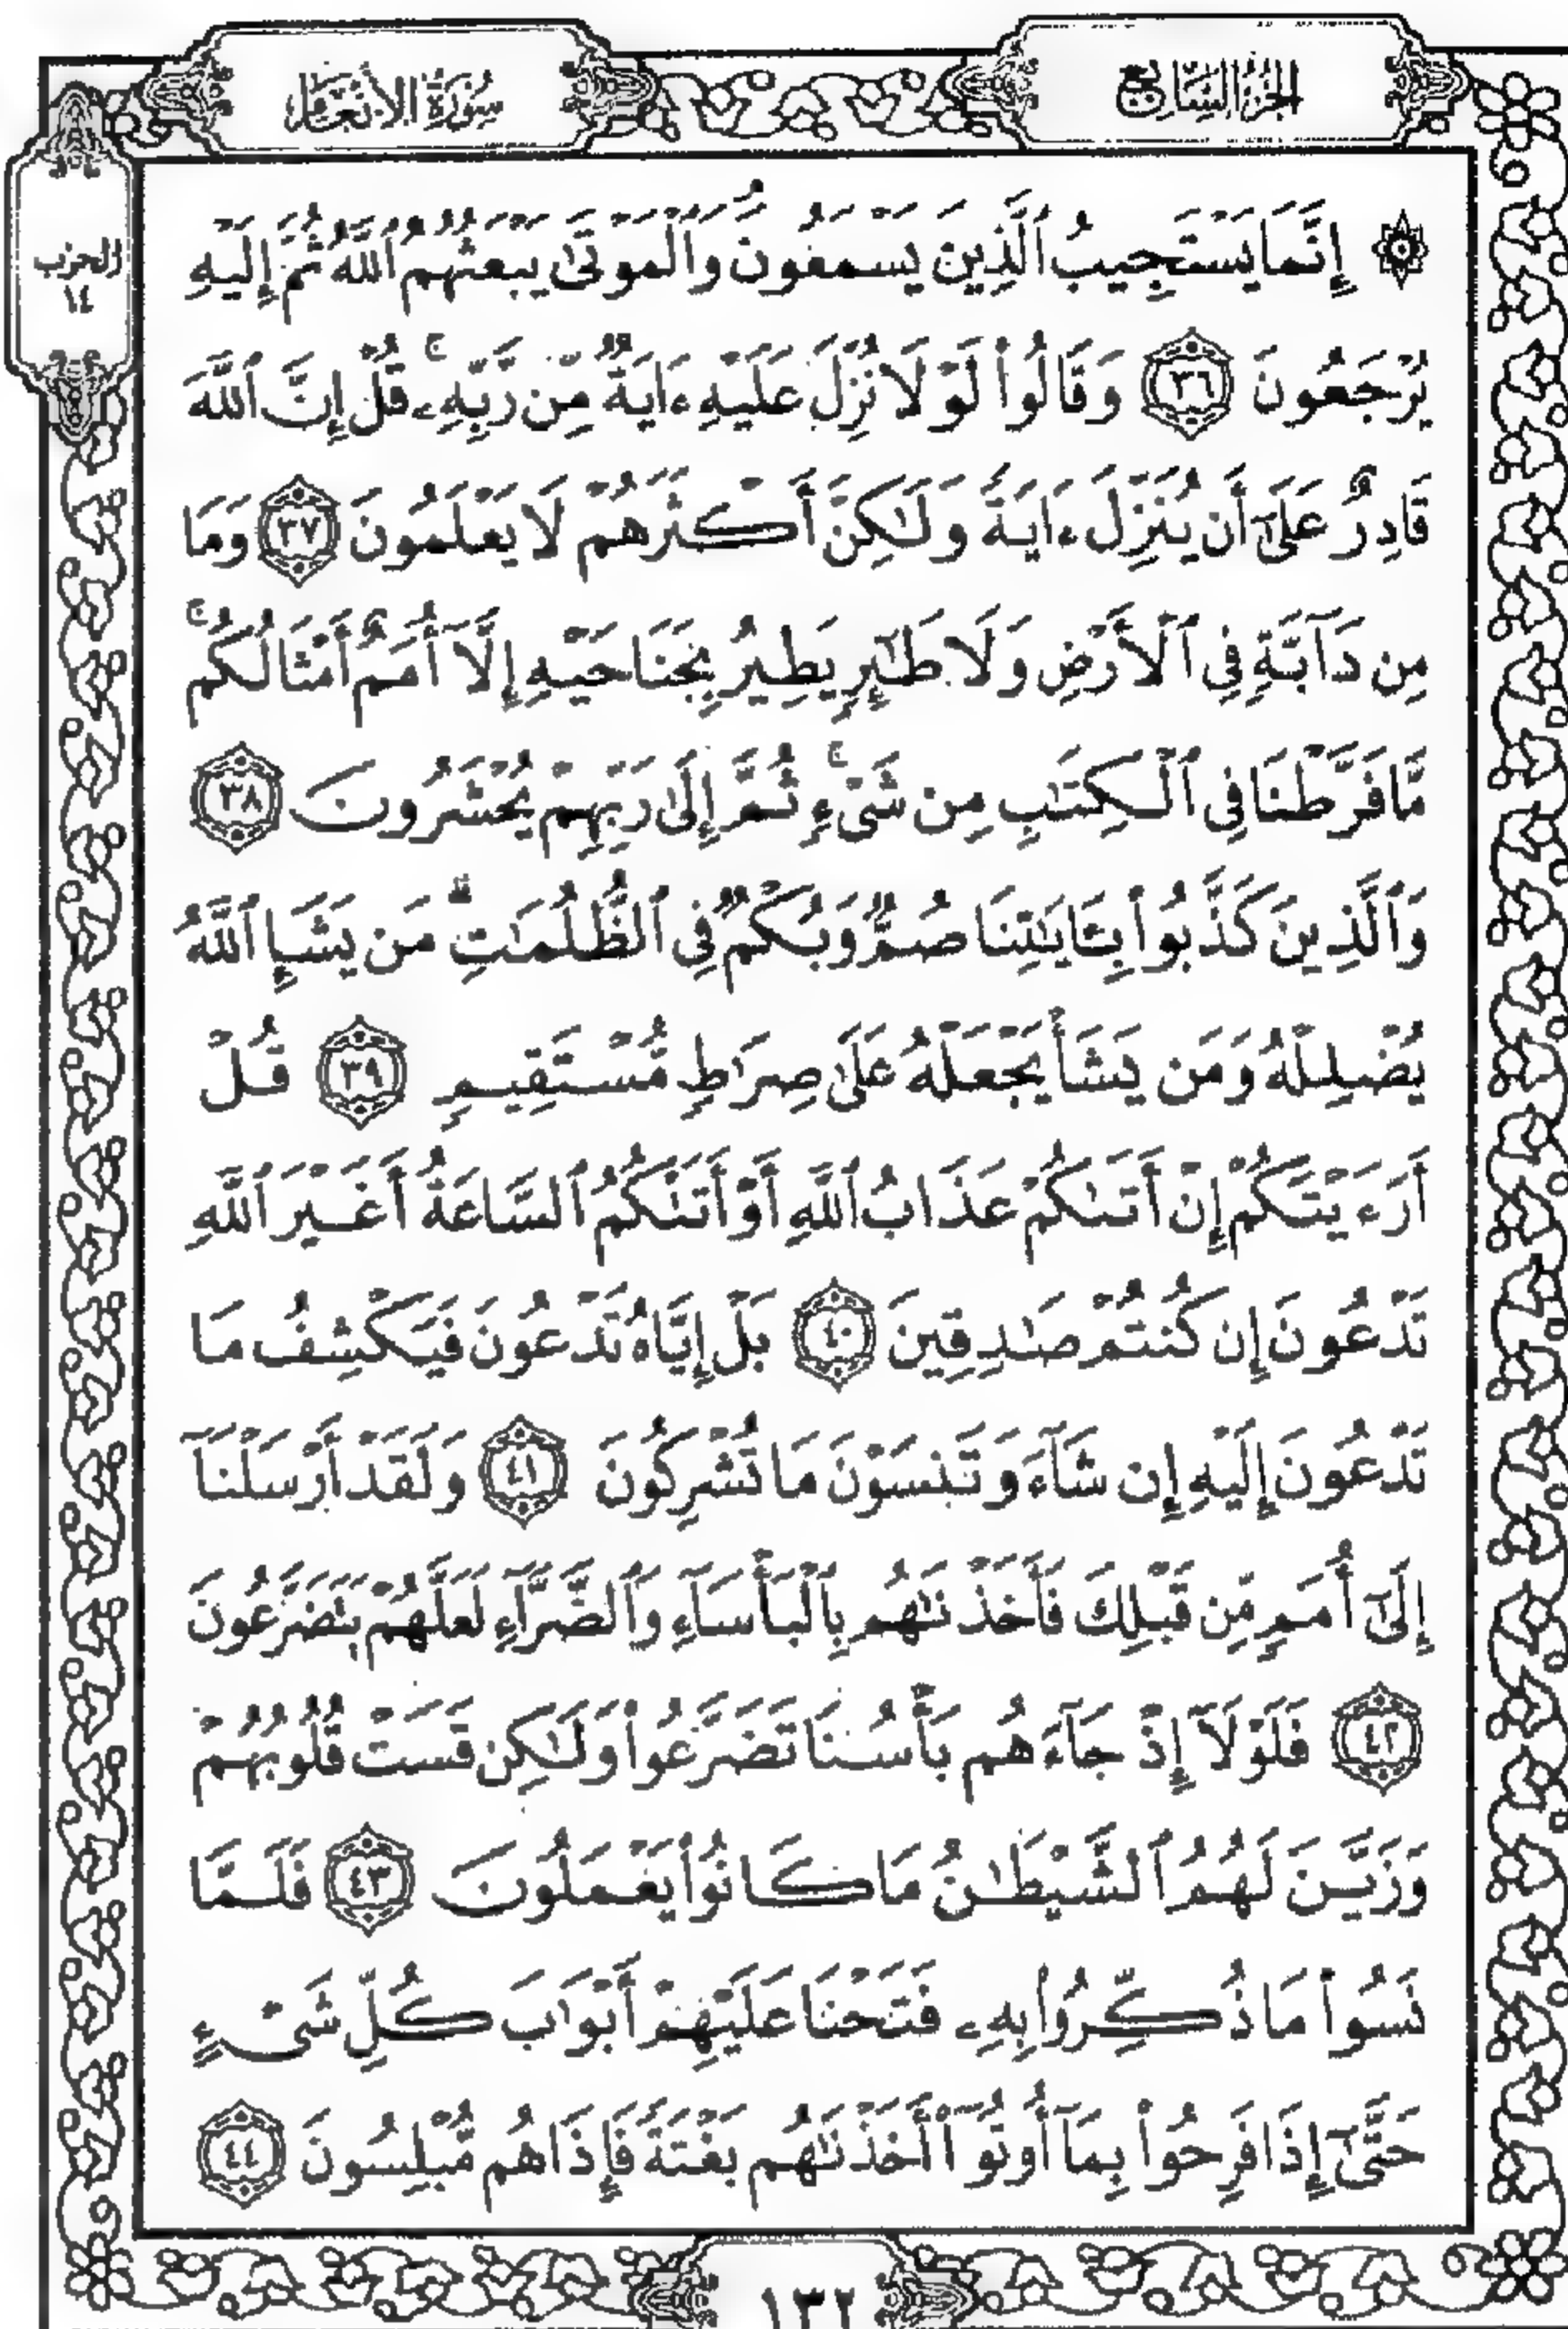 الجزء السابع
سورة الأنعام
الحزب
١٤
۞ إِنَّمَا يَسْتَجِيبُ ٱلَّذِينَ يَسْمَعُونَۘ وَٱلْمَوْتَىٰ يَبْعَثُهُمُ ٱللَّهُ ثُمَّ إِلَيْهِ
يُرْجَعُونَ ٣٦ وَقَالُوا۟ لَوْلَا نُزِّلَ عَلَيْهِ ءَايَةٌ مِّن رَّبِّهِۦۚ قُلْ إِنَّ ٱللَّهَ
قَادِرٌ عَلَىٰٓ أَن يُنَزِّلَ ءَايَةً وَلَـٰكِنَّ أَكْثَرَهُمْ لَا يَعْلَمُونَ ٣٧ وَمَا
مِن دَآبَّةٍ فِى ٱلْأَرْضِ وَلَا طَـٰٓئِرٍ يَطِيرُ بِجَنَاحَيْهِ إِلَّآ أُمَمٌ أَمْثَالُكُمۚ
مَّا فَرَّطْنَا فِى ٱلْكِتَـٰبِ مِن شَىْءٍۚ ثُمَّ إِلَىٰ رَبِّهِمْ يُحْشَرُونَ ٣٨
وَٱلَّذِينَ كَذَّبُوا۟ بِـَٔايَـٰتِنَا صُمٌّ وَبُكْمٌ فِى ٱلظُّلُمَـٰتِۗ مَن يَشَإِ ٱللَّهُ
يُضْلِلْهُ وَمَن يَشَأْ يَجْعَلْهُ عَلَىٰ صِرَٰطٍ مُّسْتَقِيمٍ ٣٩ قُلْ
أَرَءَيْتَكُمْ إِنْ أَتَىٰكُمْ عَذَابُ ٱللَّهِ أَوْ أَتَتْكُمُ ٱلسَّاعَةُ أَغَيْرَ ٱللَّهِ
تَدْعُونَ إِن كُنتُمْ صَـٰدِقِينَ ٤٠ بَلْ إِيَّاهُ تَدْعُونَ فَيَكْشِفُ مَا
تَدْعُونَ إِلَيْهِ إِن شَآءَ وَتَنسَوْنَ مَا تُشْرِكُونَ ٤١ وَلَقَدْ أَرْسَلْنَآ
إِلَىٰٓ أُمَمٍ مِّن قَبْلِكَ فَأَخَذْنَـٰهُم بِٱلْبَأْسَآءِ وَٱلضَّرَّآءِ لَعَلَّهُمْ يَتَضَرَّعُونَ
٤٢ فَلَوْلَآ إِذْ جَآءَهُم بَأْسُنَا تَضَرَّعُوا۟ وَلَـٰكِن قَسَتْ قُلُوبُهُمْ
وَزَيَّنَ لَهُمُ ٱلشَّيْطَـٰنُ مَا كَانُوا۟ يَعْمَلُونَ ٤٣ فَلَمَّا
نَسُوا۟ مَا ذُكِّرُوا۟ بِهِۦ فَتَحْنَا عَلَيْهِمْ أَبْوَٰبَ كُلِّ شَىْءٍ
حَتَّىٰٓ إِذَا فَرِحُوا۟ بِمَآ أُوتُوٓا۟ أَخَذْنَـٰهُم بَغْتَةً فَإِذَا هُم مُّبْلِسُونَ ٤٤
١٣٢